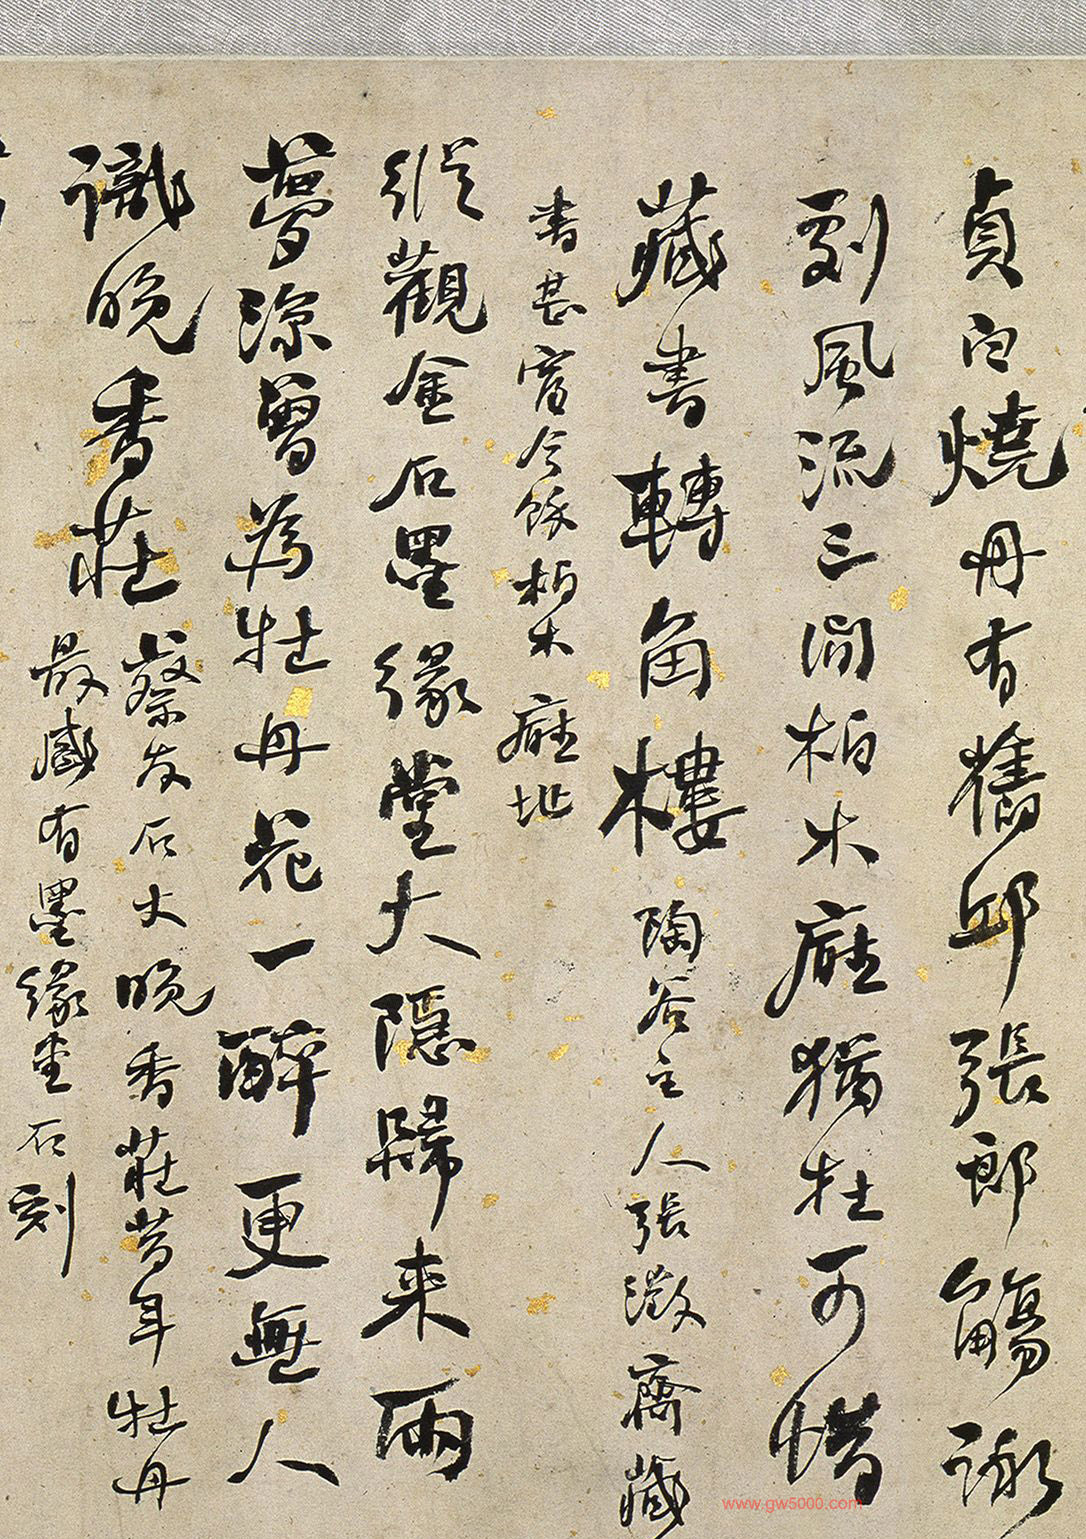 貞白燒丹有舊邱張郎觴詠
劇風流三間柏木廳猶在可惜
藏書轉角樓陶谷主人張澂齋藏
書甚富今餘柏木廳址
縱觀金石墨緣堂大隱歸来兩
夢涼曾為牡丹花一醉更無人
識晚香莊蔡友石丈晚香莊昔年牡丹
最盛有墨緣堂石刻
www.gw5000.com